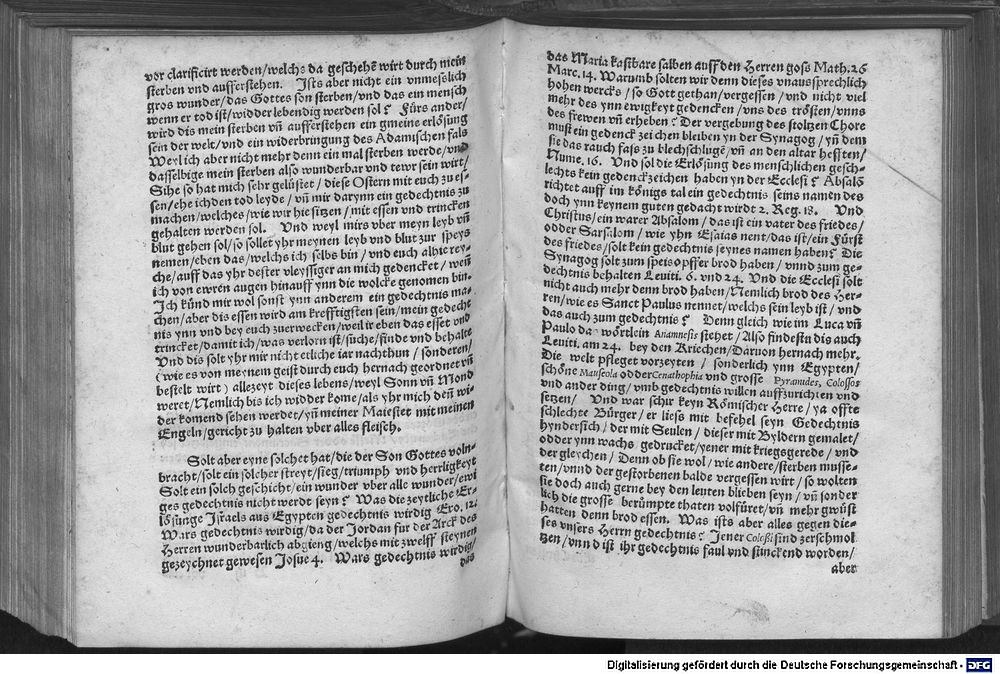 vor clarificirt werden/welchs da geschehē wirt durch mein
sterben vnd aufferstehen. Ists aber nicht ein vnmeslich
gros wunder/das Gottes son sterben/vnd das ein mensch
wenn er tod ist/widder lebendig werden sol? Fürs ander/
wird dis mein sterben vn̄ aufferstehen ein gmeine erlösung
sein der welt/vnd ein widerbringung des Adamischen fals
Weyl ich aber nicht mehr denn ein mal sterben werde/vnd
dasselbige mein sterben also wunderbar vnd tewr sein wirt/
Sihe so hat mich sehr gelüstet/diese Ostern mit euch zu es-
sen/ehe ich den tod leyde/vn̄ mir darynn ein gedechtnis zu
machen/welches/wie wir hie sitzen/mit essen vnd trincken
gehalten werden sol. Vnd weyl mirs vber meyn leyb vn̄
blut gehen sol/so sollet yhr meynen leyb vnd blut zur speys
nemen/eben das/welchs ich selbs bin/vnd euch alhie rey-
che/auff das yhr dester vleyssiger an mich gedencket/wen̄
ich von ewren augen hinauff ynn die wolcke genomen bin.
Ich künd mir wol sonst ynn anderem ein gedechtnis ma-
chen/aber dis essen wird am krefftigsten sein/mein gedecht
nis ynn vnd bey euch zuerwecken/weil ir eben das esset vnd
trincket/damit ich/was verlorn ist/süche/finde vnd behalte
Vnd dis solt yhr mir nicht etliche iar nachthun/sonderen/
(wie es von meynem geist durch euch hernach geordnet vn̄
bestelt wirt) allezeyt dieses lebens/weyl Sonn vn̄ Mond
weret/Nemlich bis ich widder kome/als yhr mich den̄ wi-
der komend sehen werdet/yn̄ meiner Maiestet mit meinen
Engeln/gericht zu halten vber alles fleisch.
Solt aber eyne solchet hat/die der Son Gottes voln-
bracht/solt ein solcher streyt/sieg/triumph vnd herrligkeyt
Solt ein solch geschicht/ein wunder vber alle wunder/ewi
ges gedechtnis nicht werdt seyn? Was die zeytliche Er-
lösünge Israels aus Egypten gedechtnis wirdig Exo. 12.
Wars gedechtnis wirdig/da der Jordan für der Arck des
Herren wunderbarlich abgieng/welchs mit zwelff steynen
gezeychnet gewesen Josue 4. Wars gedechtnis wirdig/
das
das Maria kastbare salben auff den Herren gos Math. 26
Marc. 14. Warumb solten wir denn dieses vnaussprechlich
hohen wercks/so Gott gethan/vergessen/vnd nicht viel
mehr des ynn ewigkeyt gedencken/vns des trösten/vnns
des frewen vn̄ erheben? Der vergebung des stoltzen Chore
must ein gedenck zeichen bleiben yn der Synagog/yn̄ dem
sie das rauch fass zu blechschlugē/vn̄ an den altar hefften/
Nume. 16. Vnd sol die Erlösung des menschlichen gesch-
lechts kein gedenckzeichen haben yn der Ecclesi? Absalō
richtet auff im königs tal ein gedechtnis seins namen des
doch ynn keynem guten gedacht wirdt 2. Reg. 18. Vnd
Christus/ein warer Absalom/das ist ein vater des friedes/
odder Sarsalom/wie yhn Esaias nent/das ist/ein Fürst
des friedes/solt kein gedechtnis seynes namen haben? Die
Synagog solt zum speisopffer brod haben/vnnd zum ge-
dechtnis behalten Leuiti. 6. vnd 24. Vnd die Ecclesi solt
nicht auch mehr denn brod haben/Nemlich brod des Her-
ren/wie es Sanct Paulus nennet/welchs sein leyb ist/vnd
das auch zum gedechtnis? Denn gleich wie im Luca vn̄
Paulo da wörtlein Anamnesis stehet/Also findestu dis auch
Leuiti. am 24. bey den Kriechen/Daruon hernach mehr.
Die welt pfleget vorzeyten/sonderlich ynn Egypten/
schöne Mauseola odder Cenathophia vnd grosse Pyramides, Colossos
vnd ander ding/vmb gedechtnis willen auffzurichten vnd
setzen/ Vnd war schir keyn Römischer Herre/ya offte
schlechte Bürger/er liess mit befehel seyn Gedechtnis
hyndersich/der mit Seulen/dieser mit Byldern gemalet/
odder ynn wachs gedrucket/yener mit kriegsgerede/vnd
der gleychen/Denn ob sie wol/wie andere/sterben musse-
ten/vnnd der gestorbenen balde vergessen wirt/so wolten
sie doch auch gerne bey den leuten blieben seyn/vn̄ sonder
lich die grosse berümpte thaten volfüret/vn̄ mehr gwüst
hatten denn brod essen. Was ists aber alles gegen die-
ses vnsers Herrn gedechtnis? Jener Coloßi sind zerschmol
tzen/vnnd ist ihr gedechtnis faul vnd stinckend worden/
aber
Digitalisierung gefördert durch die Deutsche Forschungsgemeinschaft - DFG